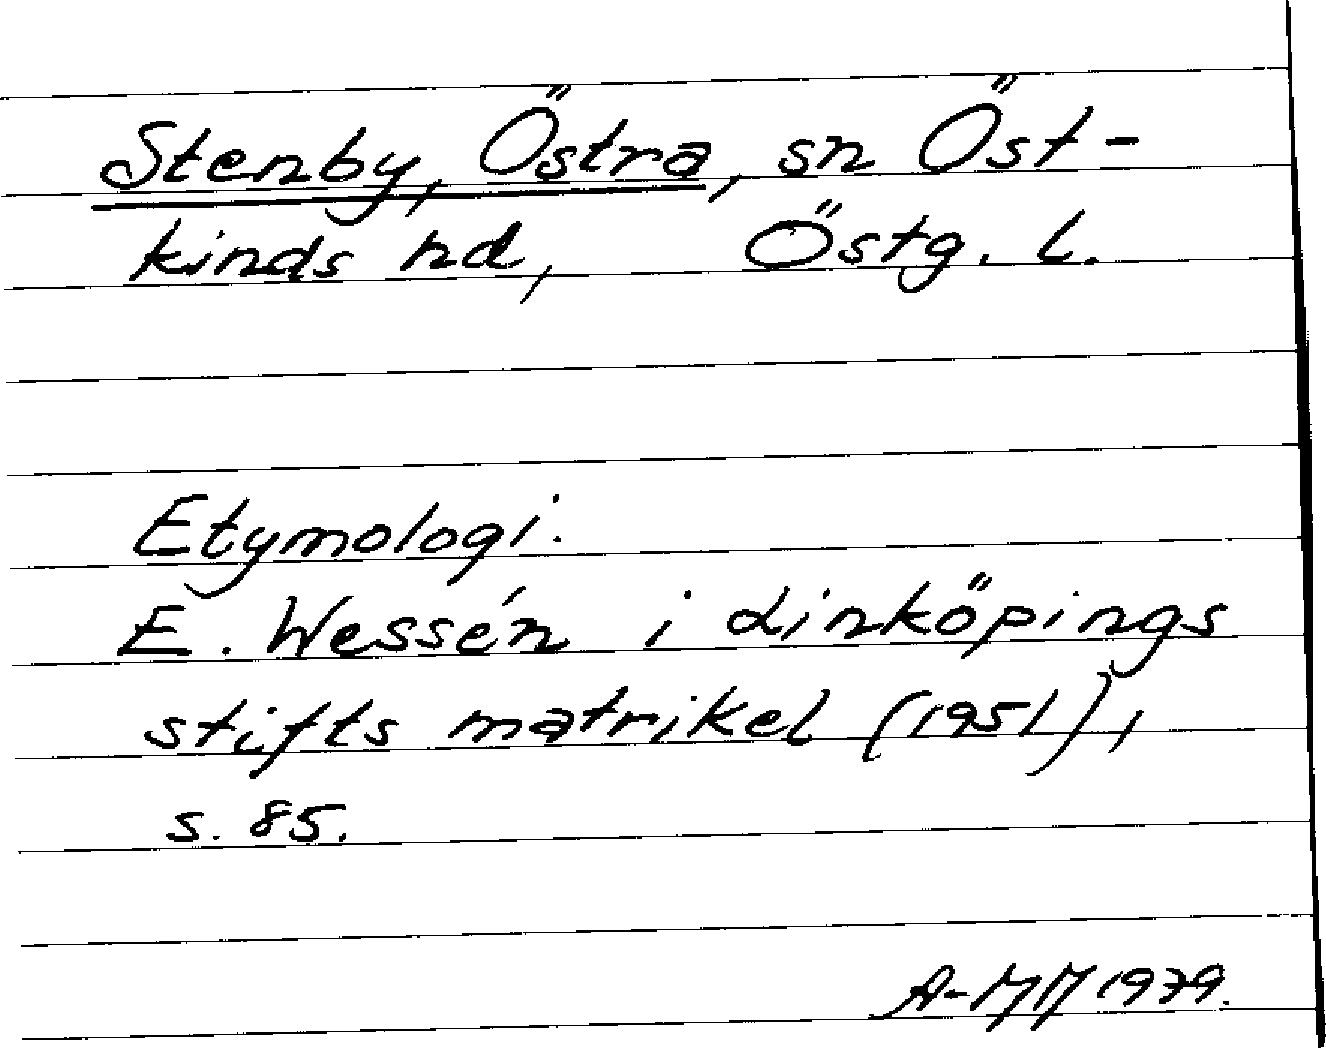 Stenby, Östra, sn Öst-
kinds hd, Östg. l.
Etymologi.
E. Wessén i Linköpings
stifts matrikel (1951),
s. 85.
A-MM 1979.